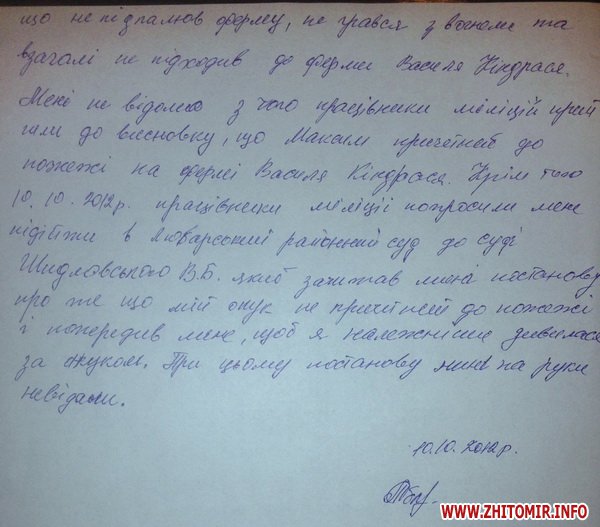 що не підпалював ферму, не грався з вогнем та
взагалі не підходив до ферми Василя Кіндрася.
Мені не відомо з чого працівники міліції прий
шли до висновку, що Максим причетней до
пожежі на фермі Василя Кіндрася. Крім того
10.10.2012р. працівники міліції попросили мене
підійти в Любарський районний суд до суді
Шидловського В.Б. який зачитав мені постанову
про те що мій онук не причетней до пожежі
і попередив мене, щоб я належніше дивилася
за онуком. При цьому постанову мині на руки
невідали.
10.10.2012р.
www.ZHITOMIR.info